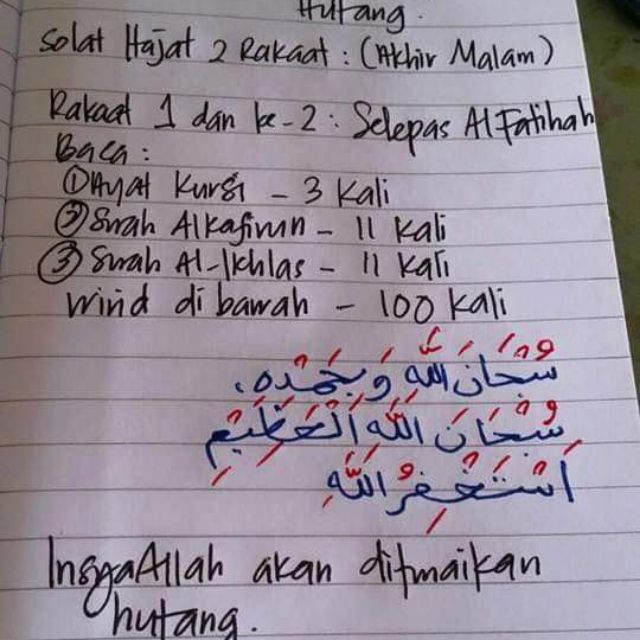 Hutang.
Solat Hajat 2 Rakaat : (Akhir Malam)
Rakaat 1 dan ke-2 : Selepas AlFatihah
Baca :
① Ayat Kursi - 3 Kali
② Surah Alkafirun - 11 Kali
③ Surah Al-Ikhlas - 11 Kali
Wirid di bawah - 100 Kali
سُبْحَانَ اللَّهِ وَبِحَمْدِهِ،
سُبْحَانَ اللَّهِ الْعَظِيْمِ
أَسْتَغْفِرُ اللَّهَ
InsyaAllah akan ditunaikan
hutang.